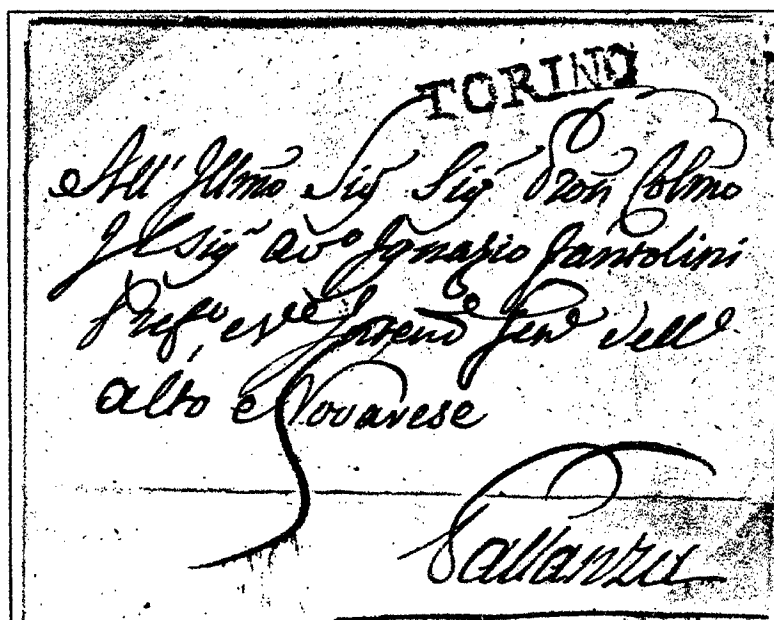 TORINO
All' Illmo Sig Sig Pron Colmo
Il Sig Avo Ignazio
Prefo, e Vce Intend Genle dell
Alto Novarese
Pallanza